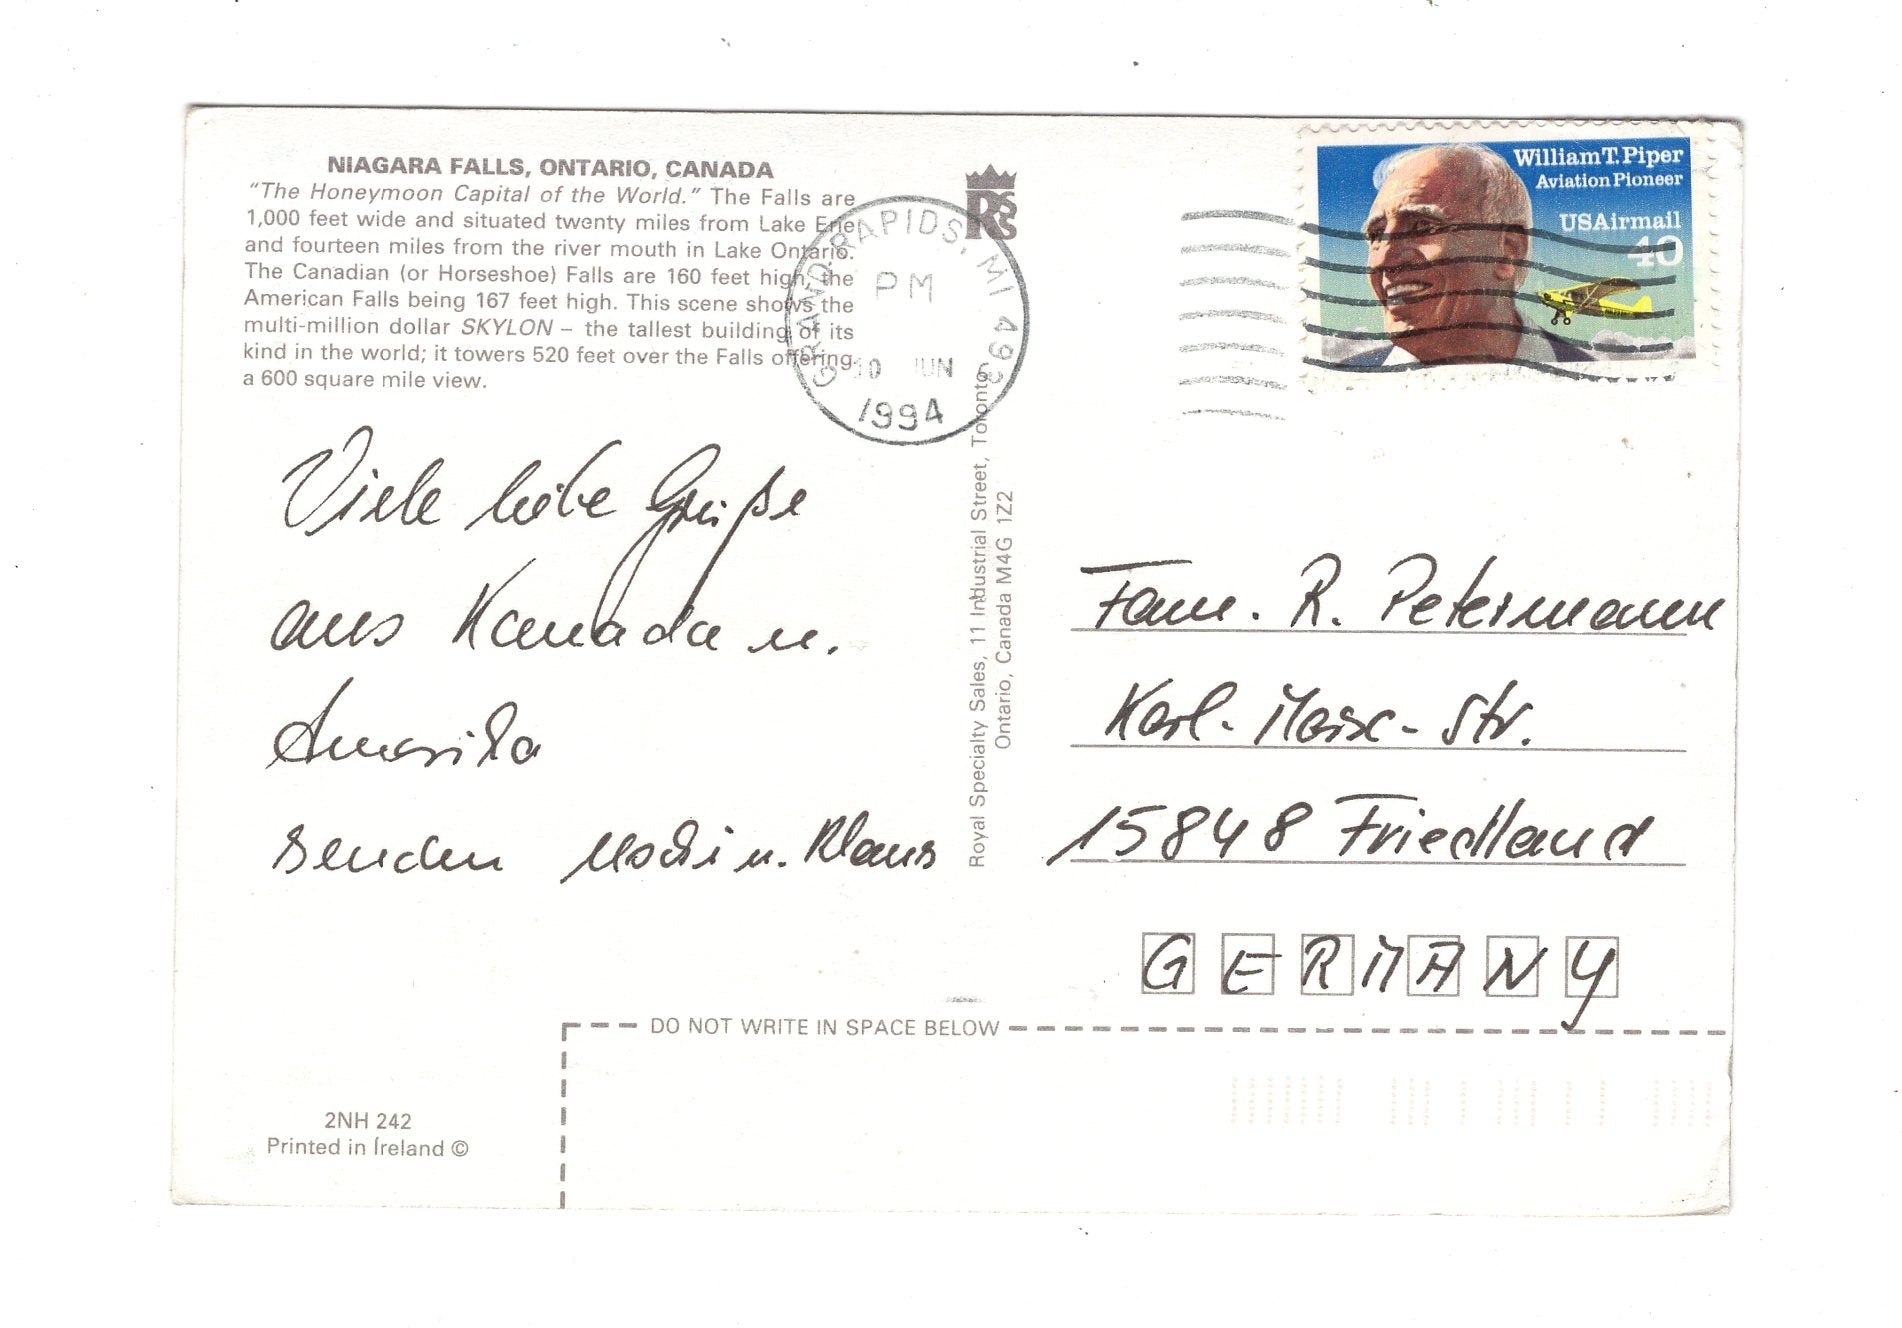 NIAGARA FALLS, ONTARIO, CANADA
"The Honeymoon Capital of the World." The Falls are
1,000 feet wide and situated twenty miles from Lake Erie
and fourteen miles from the river mouth in Lake Ontario.
The Canadian (or Horseshoe) Falls are 160 feet high, the
American Falls being 167 feet high. This scene shows the
multi-million dollar SKYLON – the tallest building of its
kind in the world; it towers 520 feet over the Falls offering
a 600 square mile view.
Viele liebe Grüße
aus Kanada u.
Amerika
senden u. Klaus
2NH 242
Printed in Ireland ©
GRAND RAPIDS, MI 493
PM
10 JUN
1994
RSS
Royal Specialty Sales, 11 Industrial Street, Toronto,
Ontario, Canada M4G 1Z2
William T. Piper
Aviation Pioneer
USAirmail
40
Fam. R. Petermann
Karl-Marx-Str.
15848 Friedland
GERMANY
DO NOT WRITE IN SPACE BELOW